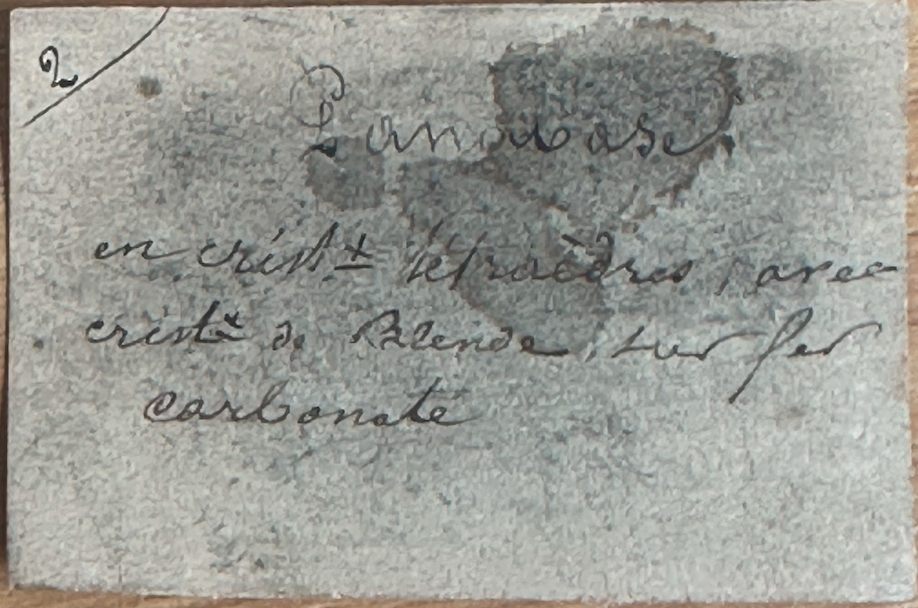 2
Panabase.
en crist.x tétraèdres, avec
crist.x de Blende, sur fer
carbonaté